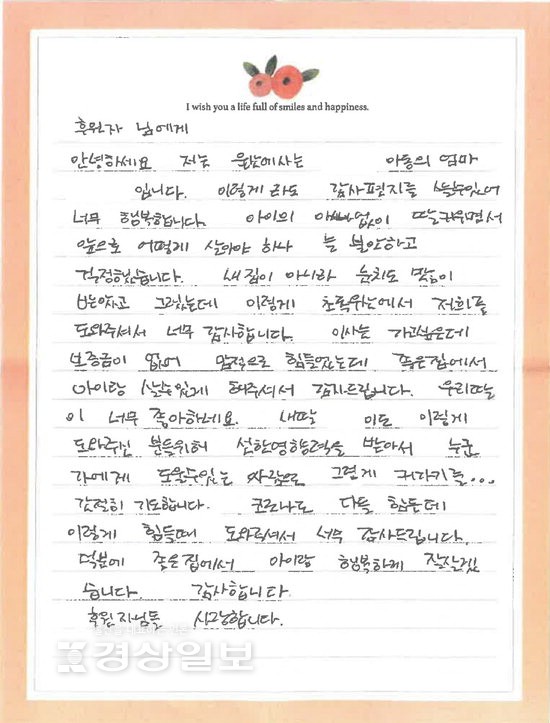 I wish you a life full of smiles and happiness.
후원자 님에게
안녕하세요 저는 울산에사는 아동의 엄마
입니다. 이렇게 라도 감사편지를 쓸수있어
너무 행복합니다. 아이의 아빠없이 딸키우면서
앞으로 어떻게 살아야 하나 늘 불안하고
걱정했습니다. 내집이 아니라 눈치도 많이
받았고 그랬는데 이렇게 초록우산에서 저희를
도와주셔서 너무 감사합니다. 이사는 가고싶은데
보증금이 없어 맘적으로 힘들었는데 좋은집에서
아이랑 살수있게 해주셔서 감사드립니다. 우리딸
이 너무 좋아하네요. 내딸 이도 이렇게
도와주신 분들위해 선한영향력을 받아서 누군
가에게 도울수있는 사람으로 그렇게 커가기를...
간절히 기도합니다. 코로나로 다들 힘든데
이렇게 힘들때 도와주셔서 너무 감사드립니다.
덕분에 좋은집에서 아이랑 행복하게 잘살겠
습니다. 감사합니다.
후원자님들 사랑합니다.
경상일보